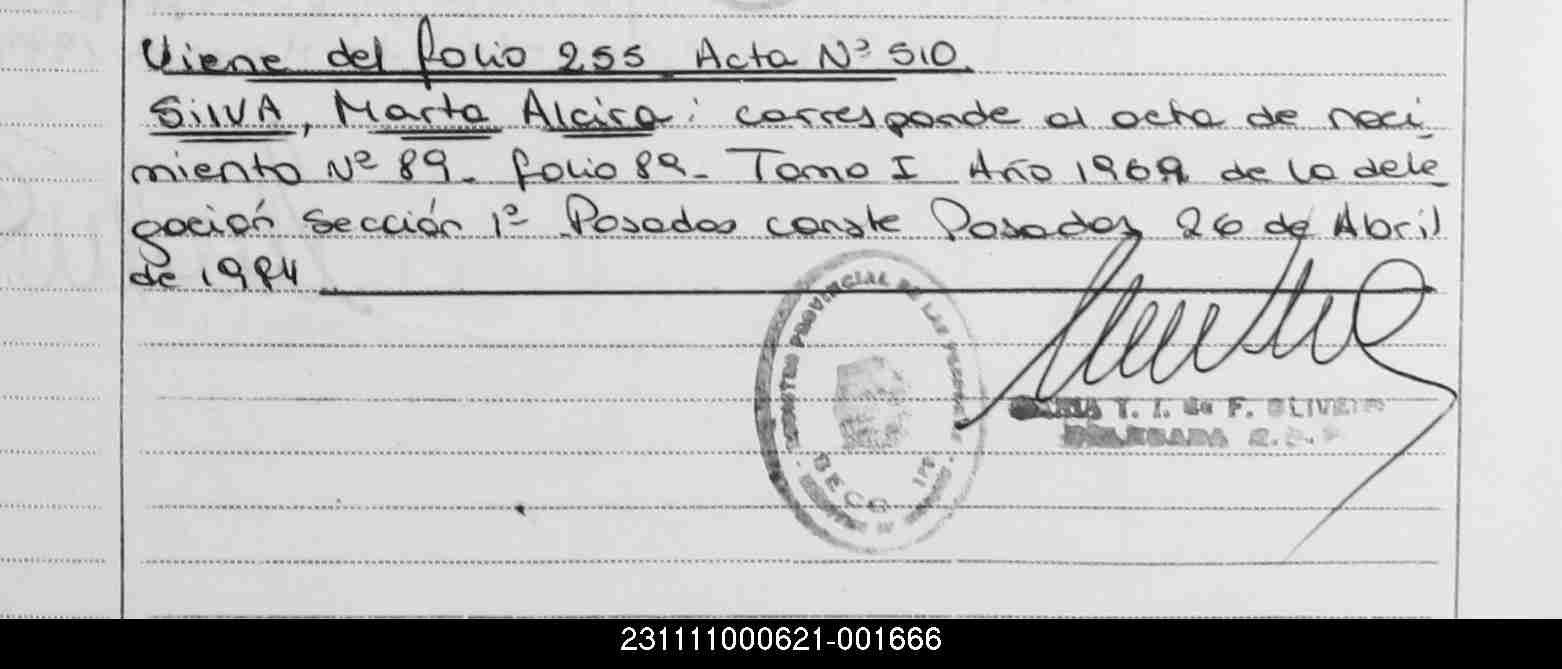 Viene del folio 255 Acta Nº 510.
SilVA, Marta Alcira: corresponde al acta de naci
miento Nº 89. folio 89- Tomo I Año 1969 de la dele
gación sección 1ª Posadas conste Posadas, 26 de Abril
de 1984
PROVINCIAL DE LAS PERSONAS
SECC 1ra
MARIA T. I. de F. OLIVEIRA
DELEGADA R.D.P
231111000621-001666